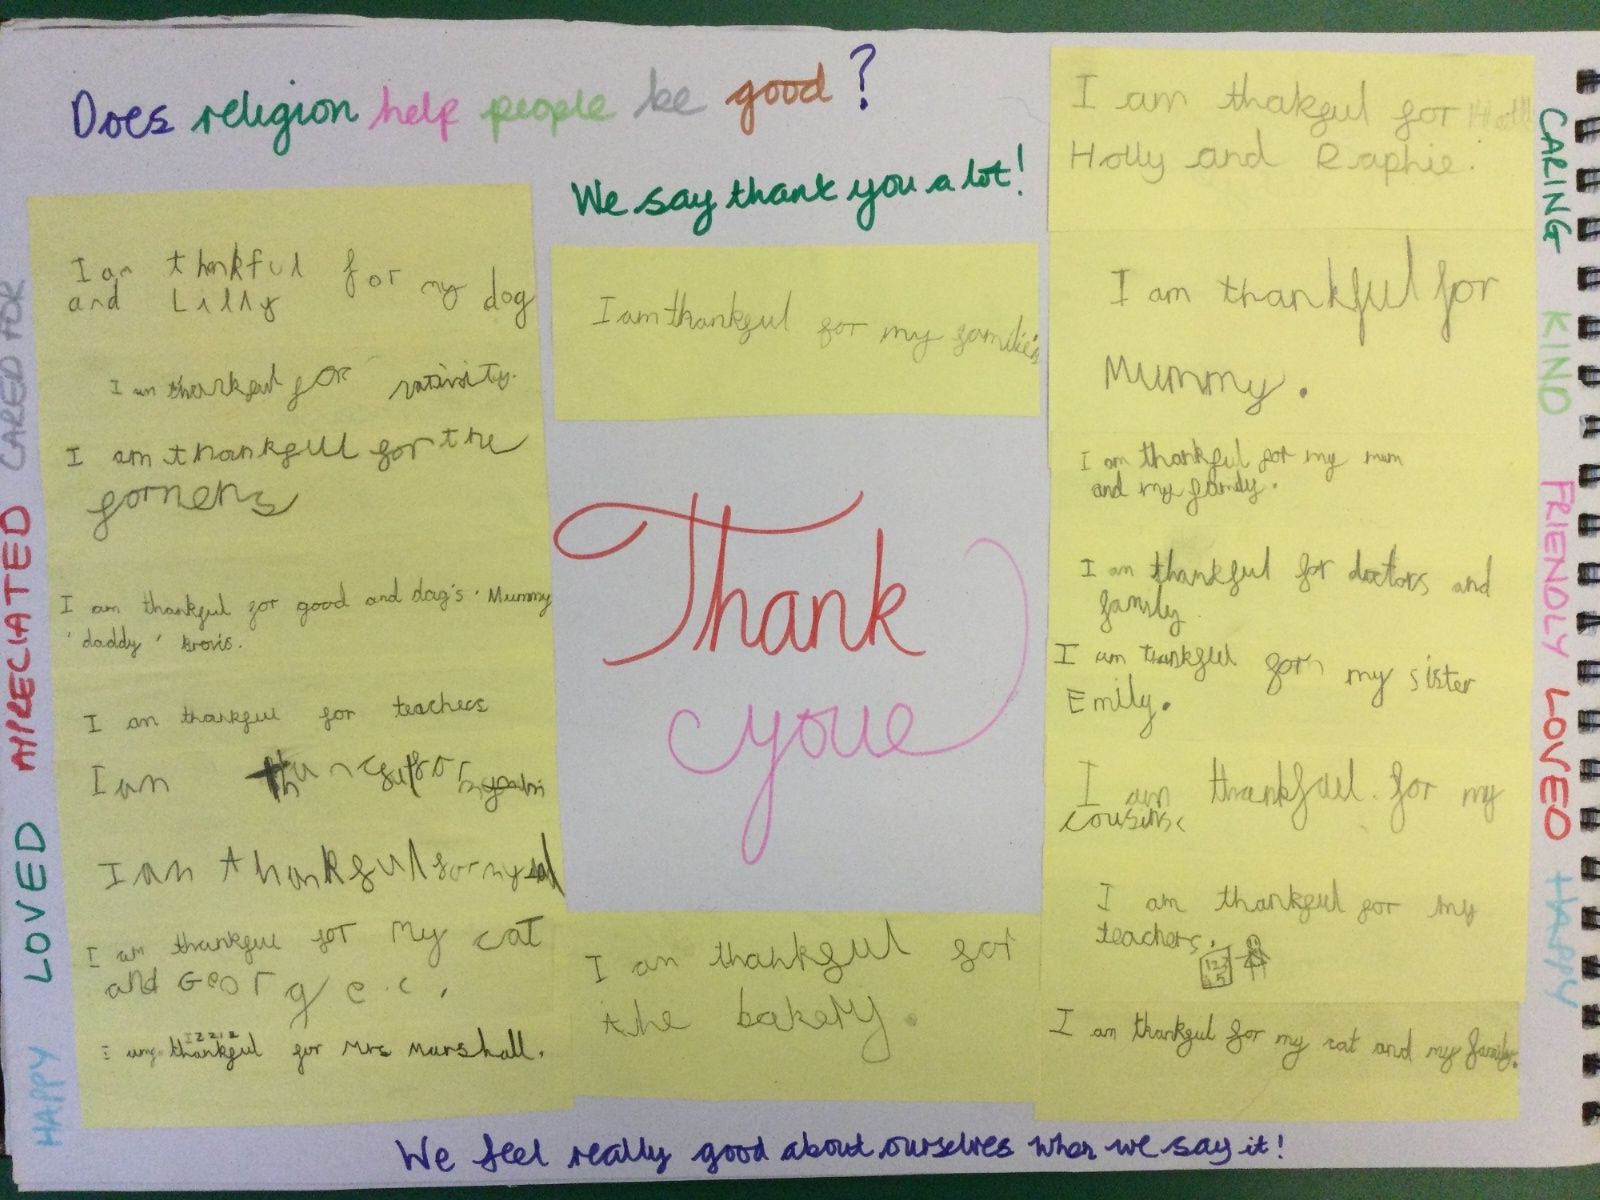 Does religion help people be good?
We say thank you a lot!
CARED FOR
APPRECIATED
LOVED
HAPPY
I am thankful for my dog
and Lilly
I am thankful for nativity.
I am thankful for the
I am thankful for good and dog's. Mummy
'daddy'
I am thankful for teachers
I am
I am thankful for my
I am thankful for my cat
and George.c.
I thankful for Mrs Marshall.
I am thankful for my
Thank
you
I am thankful for
the bakery.
I am thakful for
Holly and Raphie.
I am thankful for
Mummy.
I am thankful for my mum
and my family.
I am thankful for doctors and
family
I am thankful for my sister
Emily.
I am thankful. for my
cousins
I am thankful for my
teachers.
I am thankful for my cat and my family.
CARING
KIND
FRIENDLY
LOVED
HAPPY
We feel really good about ourselves when we say it!